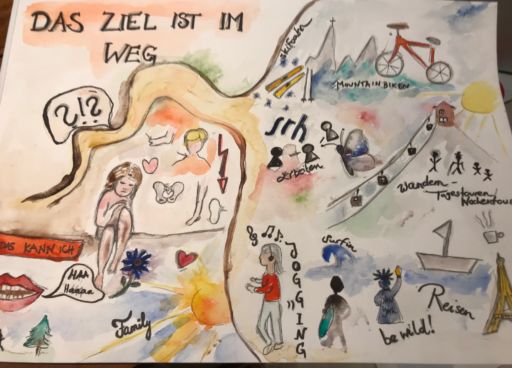 DAS ZIEL IST IM
WEG
?!?
skifahren
MOUNTAINBIKEN
Wandern-
Tagestouren/
DAS KANN ICH
HAA
Haaaaa
Family
JOGGING
surfen
Reisen
be wild!